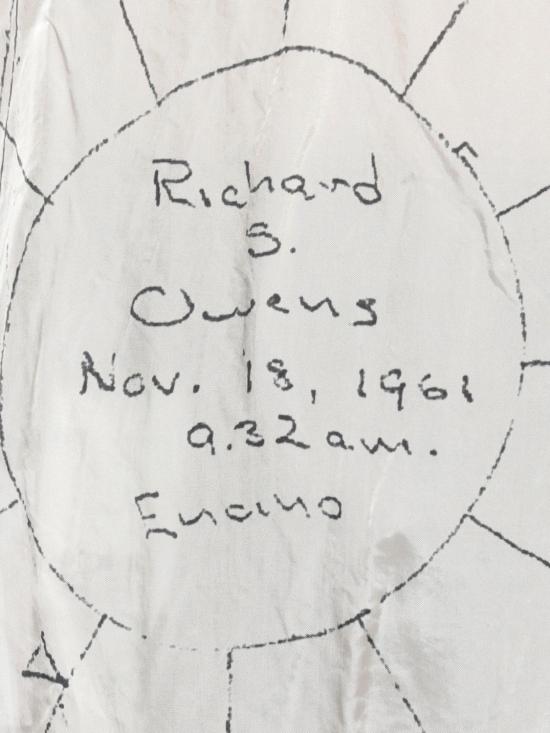 Richard
S.
Owens
Nov. 18, 1961
9.32 am.
Encino